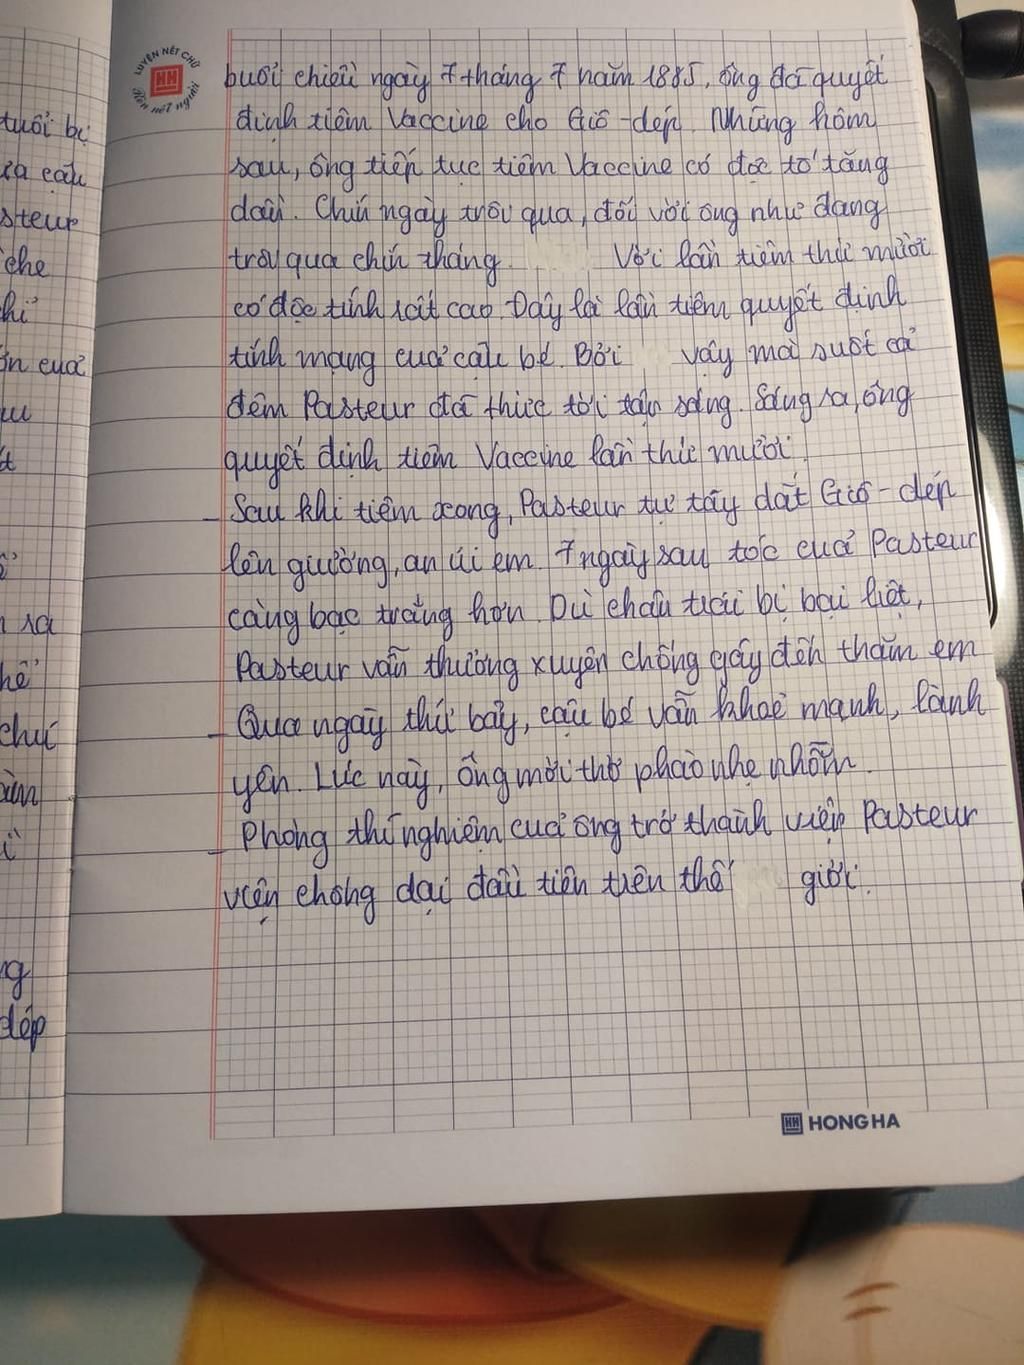 LUYỆN NÉT CHỮ
Rèn nết người
tuổi bị
ra cầu
steur
che
hi
ơn cuả
ra
chú
dép
buổi chiều ngày 7 tháng 7 năm 1885, ông đã quyết
định tiêm Vaccine cho Giô-dép. Những hôm
sau, ông tiếp tục tiêm Vaccine có độc tố tăng
dần. Chín ngày trôi qua, đối với ông như đang
trôi qua chín tháng. Với lần tiêm thứ mười
có độc tính rất cao. Đây là lần tiêm quyết định
tính mạng cuả cậu bé. Bởi vậy mà suốt cả
đêm Pasteur đã thức tới tận sáng. Sáng ra, ông
quyết định tiêm Vaccine lần thứ mười.
- Sau khi tiêm xong, Pasteur tự tay dắt Giô-dép
lên giường, an ủi em. 7 ngày sau tóc cuả Pasteur
càng bạc trắng hơn. Dù chân trái bị bại liệt,
Pasteur vẫn thường xuyên chống gậy đến thăm em
- Qua ngày thứ bảy, cậu bé vẫn khoẻ mạnh, lành
yên. Lúc này, ông mới thở phào nhẹ nhõm.
- Phòng thí nghiệm cuả ông trở thành viện Pasteur
viện chống dại đầu tiên trên thế giới.
HONG HA